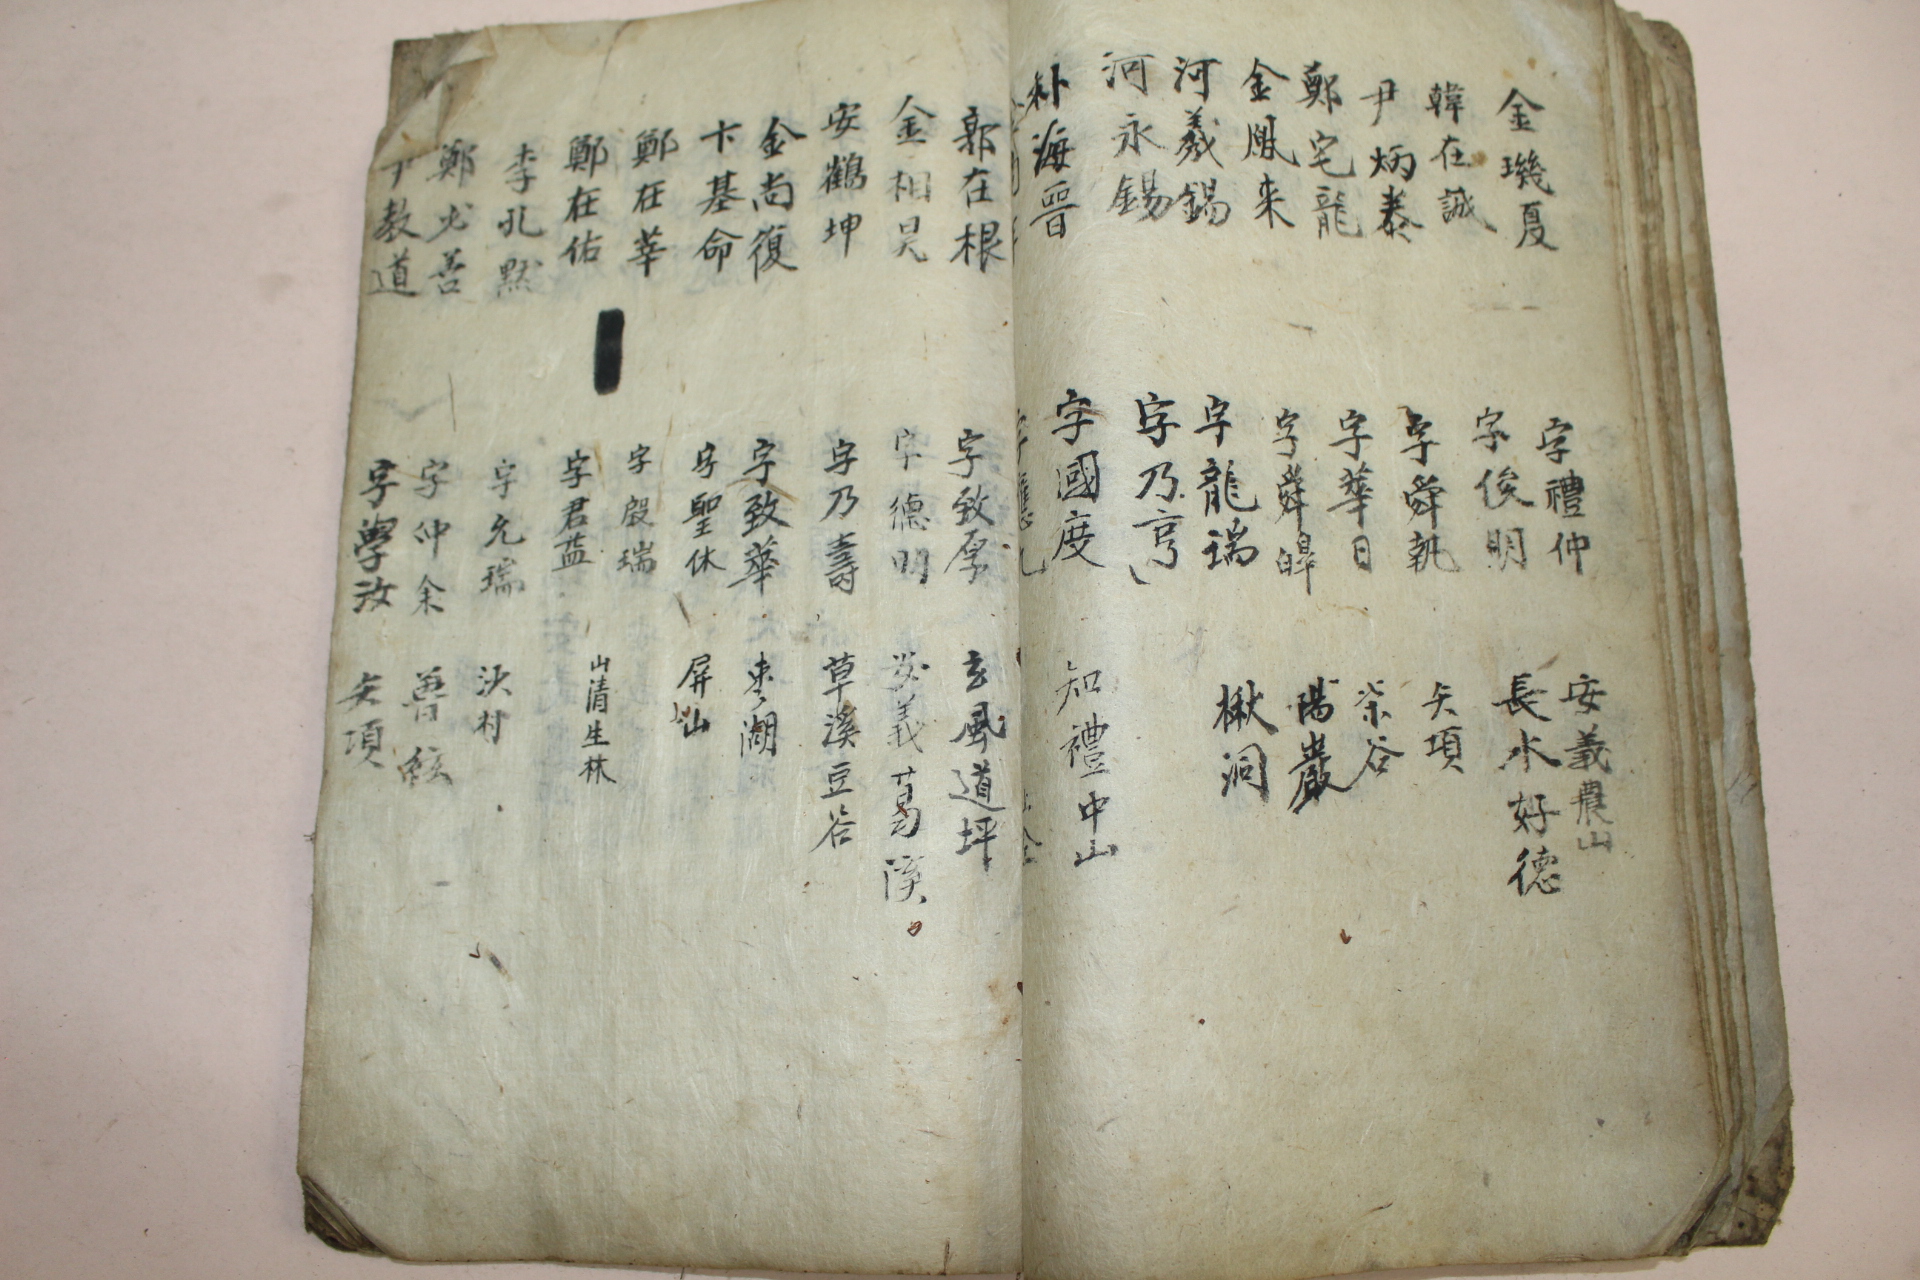 金璣夏 字禮仲 安義農山
韓在誠 字俊明 長水好德
尹炳泰 字舜執 矢項
鄭宅龍 字華日 茶谷
金鳳來 字舜皡 陽巖
河羲錫 字龍瑞 楸洞
河永錫 字乃亨
朴海晉 字國度 知禮中山
郭在根 字致厚 玄風道坪
金相昊 字德明 安義葛溪
安鶴坤 字乃壽 草溪豆谷
金尚復 字致華 枣湖
卞基命 字聖休 屏山
鄭在華 字殷瑞
鄭在佑 字君益 山清生林
李孔默 字允瑞 次村
鄭光善 字仲余 晉
尹教道 字學汝 矢項